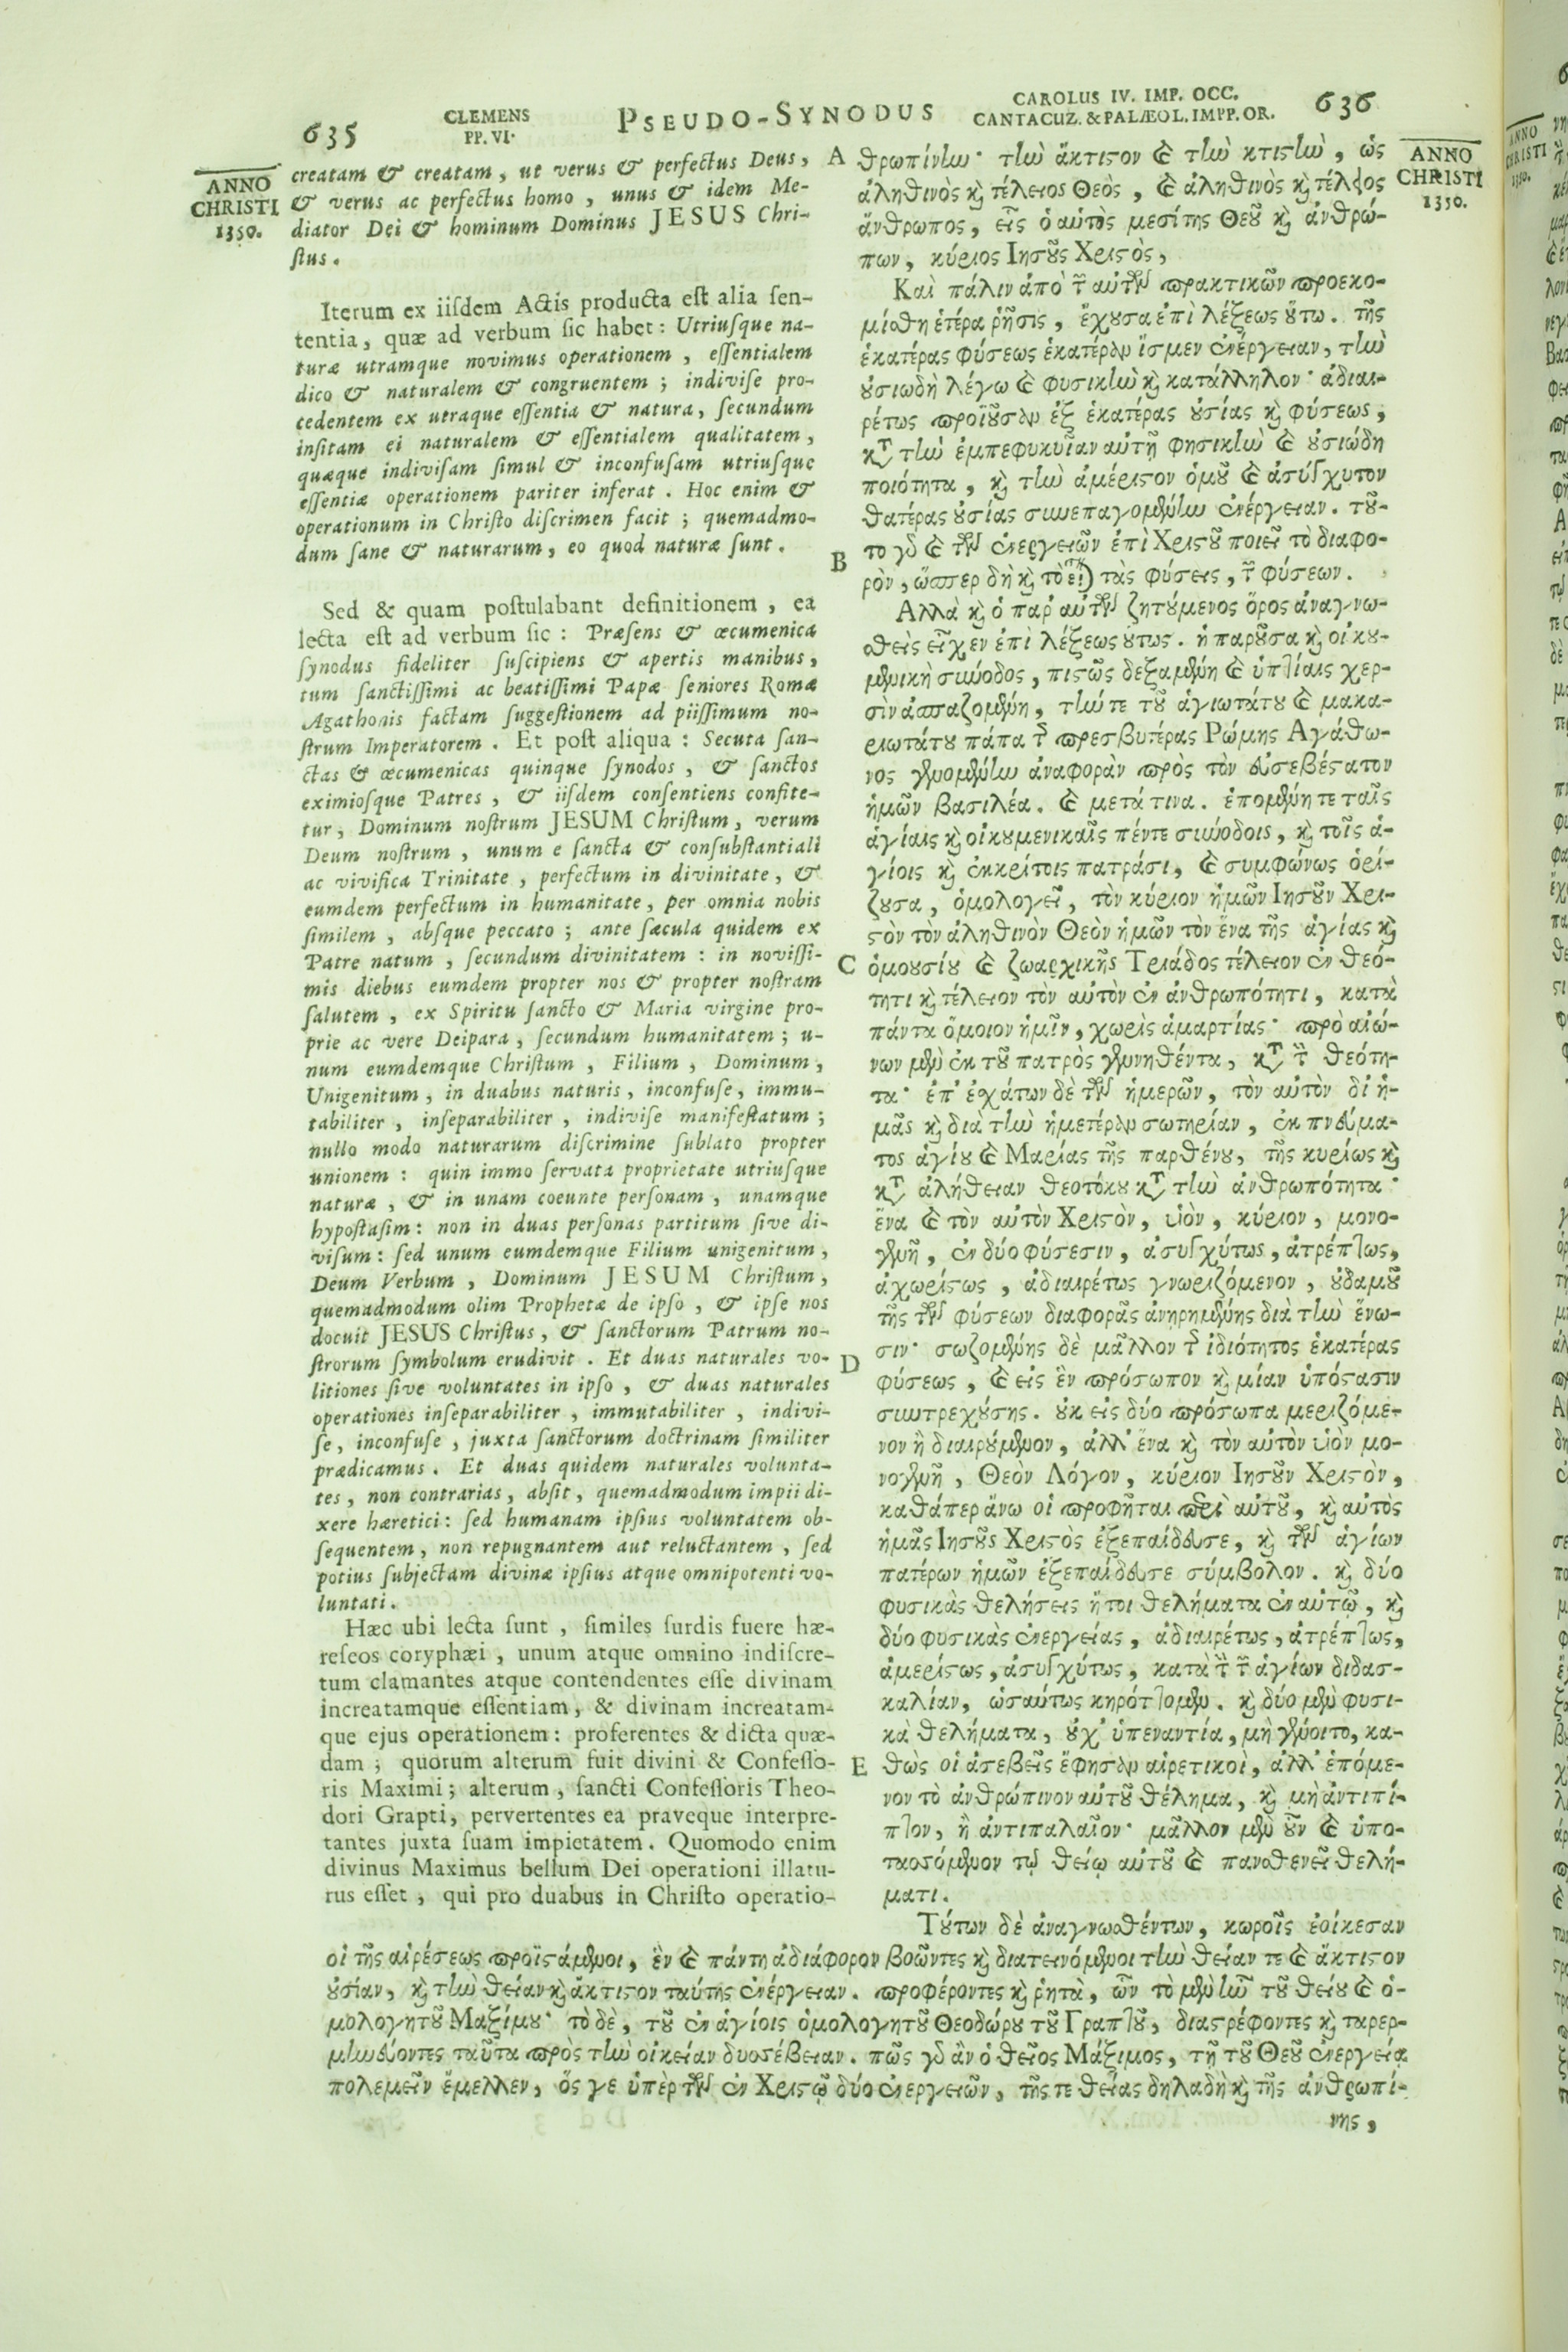 635
CLEMENS
PP. VI.
PSEUDO-SYNODUS
CAROLUS IV. IMP. OCC.
CANTACUZ. & PALÆOL. IMPP. OR.
636
ANNO
CHRISTI
1350.
creatam & creatam, ut verus & perfectus Deus,
& verus ac perfectus homo, unus & idem Me-
diator Dei & hominum Dominus JESUS Chri-
ſtus.
Iterum ex iiſdem Actis producta eſt alia ſen-
tentia, quæ ad verbum ſic habet: Utriuſque na-
turæ utramque novimus operationem, eſſentialem
dico & naturalem & congruentem; indiviſe pro-
cedentem ex utraque eſſentia & natura, ſecundum
inſitam ei naturalem & eſſentialem qualitatem,
quæque indiviſam ſimul & inconfuſam utriuſque
eſſentiæ operationem pariter inferat. Hoc enim &
operationum in Chriſto diſcrimen facit; quemadmo-
dum ſane & naturarum, eo quod naturæ ſunt.
Sed & quam poſtulabant definitionem, ea
lecta eſt ad verbum ſic: Præſens & œcumenica
ſynodus fideliter ſuſcipiens & apertis manibus,
tum ſanctiſſimi ac beatiſſimi Papæ ſenioris Romæ
Agathonis factam ſuggeſtionem ad piiſſimum no-
ſtrum Imperatorem. Et poſt aliqua: Secuta ſan-
ctas & œcumenicas quinque ſynodos, & ſanctos
eximioſque Patres, & iiſdem conſentiens confite-
tur, Dominum noſtrum JESUM Chriſtum, verum
Deum noſtrum, unum e ſancta & conſubſtantiali
ac vivifica Trinitate, perfectum in divinitate, &
eumdem perfectum in humanitate, per omnia nobis
ſimilem, abſque peccato; ante ſæcula quidem ex
Patre natum, ſecundum divinitatem: in noviſſi-
mis diebus eumdem propter nos & propter noſtram
ſalutem, ex Spiritu ſancto & Maria virgine pro-
prie ac vere Deipara, ſecundum humanitatem; u-
num eumdemque Chriſtum, Filium, Dominum,
Unigenitum, in duabus naturis, inconfuſe, immu-
tabiliter, inſeparabiliter, indiviſe manifeſtatum;
nullo modo naturarum diſcrimine ſublato propter
unionem: quin immo ſervata proprietate utriuſque
naturæ, & in unam coeunte perſonam, unamque
hypoſtaſim: non in duas perſonas partitum ſive di-
viſum: ſed unum eumdemque Filium unigenitum,
Deum Verbum, Dominum JESUM Chriſtum,
quemadmodum olim Prophetæ de ipſo, & ipſe nos
docuit JESUS Chriſtus, & ſanctorum Patrum no-
ſtrorum ſymbolum erudivit. Et duas naturales vo-
litiones ſive voluntates in ipſo, & duas naturales
operationes inſeparabiliter, immutabiliter, indivi-
ſe, inconfuſe, juxta ſanctorum doctrinam ſimiliter
prædicamus. Et duas quidem naturales volunta-
tes, non contrarias, abſit, quemadmodum impii di-
xere hæretici: ſed humanam ipſius voluntatem ob-
ſequentem, non repugnantem aut reluctantem, ſed
potius ſubjectam divinæ ipſius atque omnipotenti vo-
luntati.
Hæc ubi lecta ſunt, ſimiles ſurdis fuere hæ-
reſeos coryphæi, unum atque omnino indiſcre-
tum clamantes atque contendentes eſſe divinam
increatamque eſſentiam, & divinam increatam-
que ejus operationem: proferentes & dicta quæ-
dam; quorum alterum fuit divini & Confeſſo-
ris Maximi; alterum, ſancti Confeſſoris Theo-
dori Grapti, pervertentes ea praveque interpre-
tantes juxta ſuam impietatem. Quomodo enim
divinus Maximus bellum Dei operationi illatu-
rus eſſet, qui pro duabus in Chriſto operatio-
A
B
C
D
E
θρωπίνην· τὴν ἄκτιστον καὶ τὴν κτιστὴν, ὡς
ἀληθινὸς καὶ τέλειος Θεὸς, καὶ ἀληθινὸς καὶ τέλειος
ἄνθρωπος, εἷς ὁ αὐτὸς μεσίτης Θεοῦ καὶ ἀνθρώ-
πων, κύριος Ιησοῦς Χριστὸς,
Καὶ πάλιν ἀπὸ τῶν αὐτῶν πρακτικῶν προεκο-
μίσθη ἑτέρα ῥῆσις, ἔχουσα ἐπὶ λέξεως οὕτω. τῆς
ἑκατέρας φύσεως ἑκατέραν ἴσμεν ἐνέργειαν, τὴν
οὐσιωδὴ λέγω καὶ φυσικὴν καὶ κατάλληλον· ἀδιαι-
ρέτως προϊοῦσαν ἐξ ἑκατέρας οὐσίας καὶ φύσεως,
κατὰ τὴν ἐμπεφυκυῖαν αὐτῇ φησικὴν καὶ οὐσιώδη
ποιότητα, καὶ τὴν ἀμέριστον ὁμοῦ καὶ ἀσύγχυτον
θατέρας οὐσίας συνεπαγομένην ἐνέργειαν. τοῦ-
το γὰρ καὶ τῶν ἐνεργειῶν ἐπὶ Χριστοῦ ποιεῖ τὸ διαφο-
ρὸν, ὥσπερ δὴ καὶ τὸ εἶναι τὰς φύσεις, τῶν φύσεων.
Αλλὰ καὶ ὁ παρ' αὐτῶν ζητούμενος ὅρος ἀναγνω-
σθεὶς εἶχεν ἐπὶ λέξεως οὕτως. ἡ παροῦσα καὶ οἰκου-
μενικὴ σύνοδος, πιστῶς δεξαμένη καὶ ὑπτίαις χερ-
σὶν ἀσπαζομένη, τήν τε τοῦ ἁγιωτάτου καὶ μακα-
ριωτάτου πάπα τῆς πρεσβυτέρας Ρώμης Αγάθω-
νος γενομένην ἀναφορὰν πρὸς τὸν εὐσεβέστατον
ἡμῶν βασιλέα. καὶ μετά τινα. ἑπομένη τε ταῖς
ἁγίαις καὶ οἰκουμενικαῖς πέντε συνόδοις, καὶ τοῖς ἁ-
γίοις καὶ ἐκκρίτοις πατράσι, καὶ συμφώνως ὁρί-
ζουσα, ὁμολογεῖ, τὸν κύριον ἡμῶν Ιησοῦν Χρι-
στὸν τὸν ἀληθινὸν Θεὸν ἡμῶν τὸν ἕνα τῆς ἁγίας καὶ
ὁμουσίου καὶ ζωαρχικῆς Τριάδος τέλειον ἐν θεό-
τητι καὶ τέλειον τὸν αὐτὸν ἐν ἀνθρωπότητι, κατὰ
πάντα ὅμοιον ἡμῖν, χωρὶς ἁμαρτίας· πρὸ αἰώ-
νων μὲν ἐκ τοῦ πατρὸς γεννηθέντα, κατὰ τὴν θεότη-
τα· ἐπ' ἐσχάτων δὲ τῶν ἡμερῶν, τὸν αὐτὸν δι' ἡ-
μᾶς καὶ διὰ τὴν ἡμετέραν σωτηρίαν, ἐκ πνεύμα-
τος ἁγίου καὶ Μαρίας τῆς παρθένου, τῆς κυρίως καὶ
κατὰ ἀλήθειαν θεοτόκου κατὰ τὴν ἀνθρωπότητα·
ἕνα καὶ τὸν αὐτὸν Χριστὸν, υἱὸν, κύριον, μονο-
γενῆ, ἐν δύο φύσεσιν, ἀσυγχύτως, ἀτρέπτως,
ἀχωρίστως, ἀδιαιρέτως γνωριζόμενον, οὐδαμοῦ
τῆς τῶν φύσεων διαφορᾶς ἀνῃρημένης διὰ τὴν ἕνω-
σιν· σωζομένης δὲ μᾶλλον τῆς ἰδιότητος ἑκατέρας
φύσεως, καὶ εἰς ἓν πρόσωπον καὶ μίαν ὑπόστασιν
συντρεχούσης. οὐκ εἰς δύο πρόσωπα μεριζόμε-
νον ἢ διαιρούμενον, ἀλλ' ἕνα καὶ τὸν αὐτὸν υἱὸν μο-
νογενῆ, Θεὸν Λόγον, κύριον Ιησοῦν Χριστὸν,
καθάπερ ἄνω οἱ προφῆται περὶ αὐτοῦ, καὶ αὐτὸς
ἡμᾶς Ιησοῦς Χριστὸς ἐξεπαίδευσε, καὶ τῶν ἁγίων
πατέρων ἡμῶν ἐξεπαίδευσε σύμβολον. καὶ δύο
φυσικὰς θελήσεις ἤτοι θελήματα ἐν αὐτῷ, καὶ
δύο φυσικὰς ἐνεργείας, ἀδιαιρέτως, ἀτρέπτως,
ἀμερίστως, ἀσυγχύτως, κατὰ τὴν τῶν ἁγίων διδασ-
καλίαν, ὡσαύτως κηρύττομεν. καὶ δύο μὲν φυσι-
κὰ θελήματα, οὐχ' ὑπεναντία, μὴ γένοιτο, κα-
θὼς οἱ ἀσεβεῖς ἔφησαν αἱρετικοὶ, ἀλλ' ἑπόμε-
νον τὸ ἀνθρώπινον αὐτοῦ θέλημα, καὶ μὴ ἀντιπί-
πτον, ἢ ἀντιπαλαῖον· μᾶλλον μὲν οὖν καὶ ὑπο-
τασσόμενον τῷ θείῳ αὐτοῦ καὶ πανσθενεῖ θελή-
ματι.
Τούτων δὲ ἀναγνωσθέντων, κωφοῖς ἐοίκεσαν
οἱ τῆς αἱρέσεως προϊστάμενοι, ἓν καὶ πάντη ἀδιάφορον βοῶντες καὶ διατεινόμενοι τὴν θείαν τε καὶ ἄκτιστον
οὐσίαν, καὶ τὴν θείαν καὶ ἄκτιστον ταύτης ἐνέργειαν. προφέροντες καὶ ῥητὰ, ὧν τὸ μὲν ἦν τοῦ θείου καὶ ὁ-
μολογητοῦ Μαξίμου· τὸ δὲ, τοῦ ἐν ἁγίοις ὁμολογητοῦ Θεοδώρου τοῦ Γραπτοῦ, διαστρέφοντες καὶ παρερ-
μηνεύοντες ταῦτα πρὸς τὴν οἰκείαν δυσσέβειαν. πῶς γὰρ ἂν ὁ θεῖος Μάξιμος, τῇ τοῦ Θεοῦ ἐνεργείᾳ
πολεμεῖν ἔμελλεν, ὅς γε ὑπὲρ τῶν ἐν Χριστῷ δύο ἐνεργειῶν, τῆς τε θείας δηλαδὴ καὶ τῆς ἀνθρωπί-
νης,
ANNO
CHRISTI
1350.
ANNO
CHRISTI
1350.